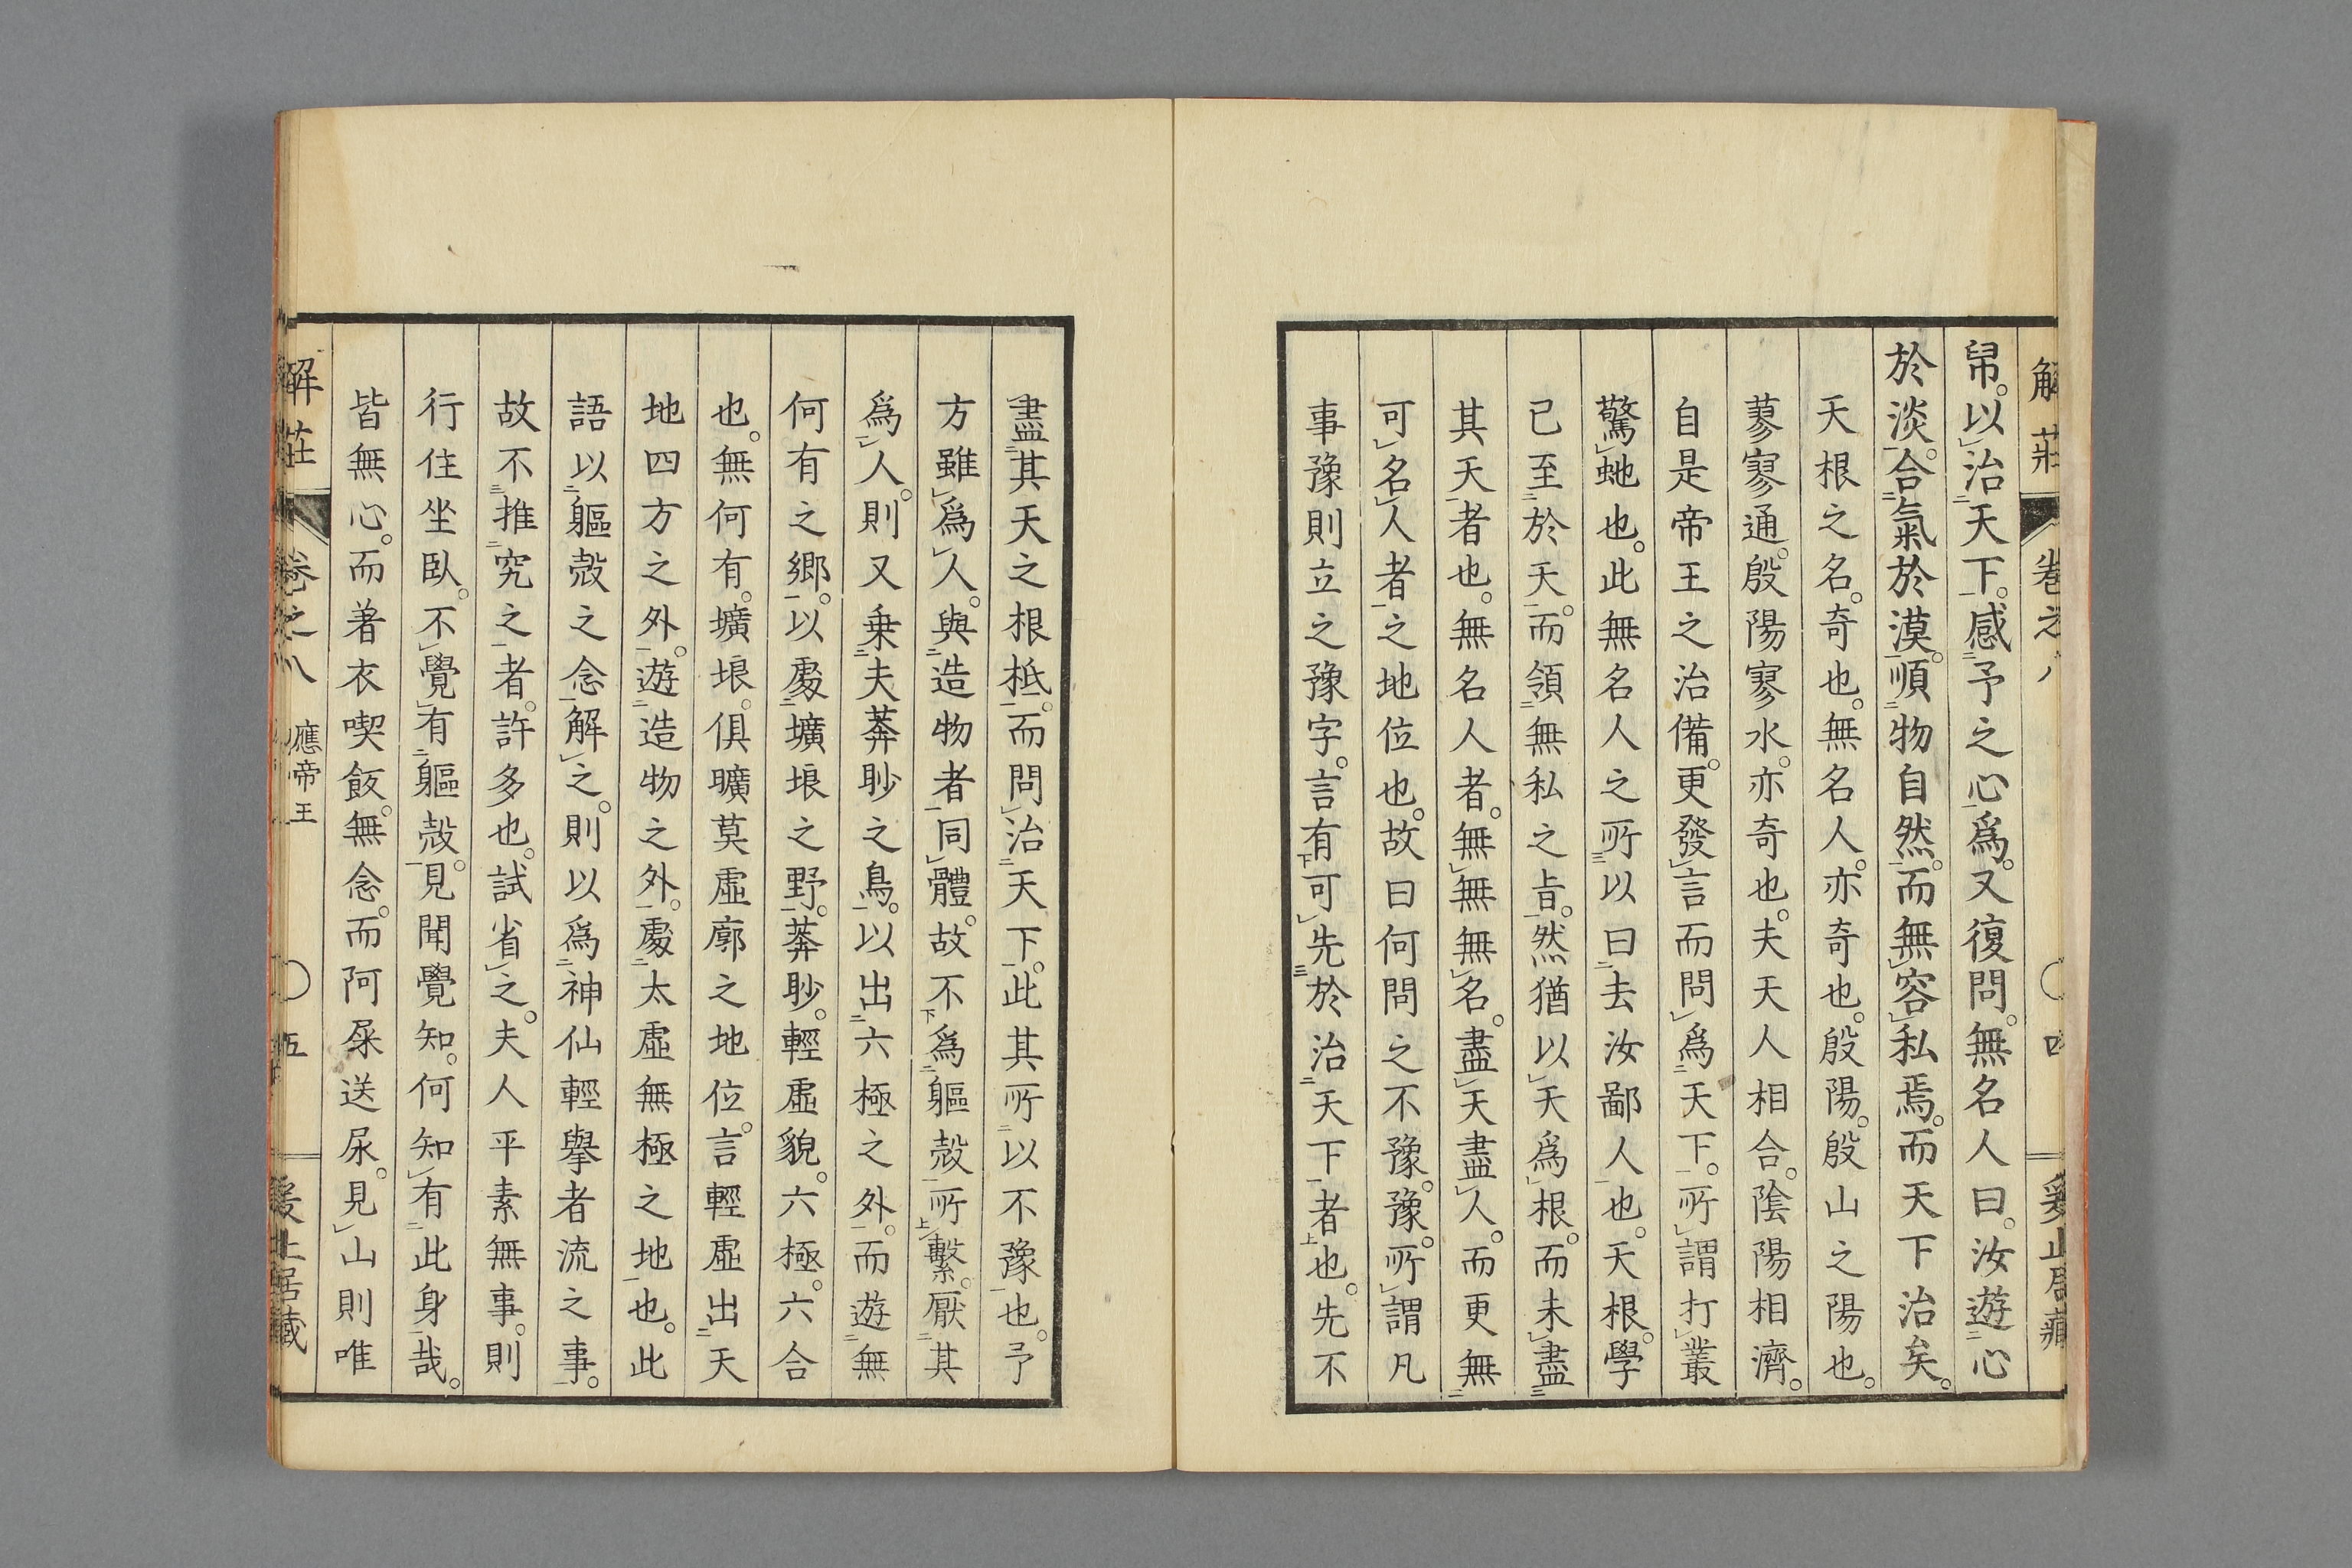 解莊 卷之八 〇 四 爰止居藏
帠。以治天下。感予之心爲。又復問。無名人曰。汝遊心
於淡。合氣於漠。順物自然。而無容私焉。而天下治矣。
天根之名。奇也。無名人。亦奇也。殷陽。殷山之陽也。
蓼寥通。殷陽寥水。亦奇也。夫天人相合。陰陽相濟。
自是帝王之治備。更發言而問爲天下。所謂打叢
驚虵也。此無名人之所以曰去汝鄙人也。天根。學
已至於天。而領無私之旨。然猶以天爲根。而未盡
其天者也。無名人者。無無無名。盡天盡人。而更無
可名人者之地位也。故曰何問之不豫。豫。所謂凡
事豫則立之豫字。言有可先於治天下者也。先不
盡其天之根柢。而問治天下。此其所以不豫也。予
方雖爲人。與造物者同體。故不爲軀殼所繫。厭其
爲人。則又乗夫莽眇之鳥。以出六極之外。而遊無
何有之鄉。以處壙埌之野。莽眇。輕虛貌。六極。六合
也。無何有。壙埌。俱曠莫虛廓之地位。言輕虛出天
地四方之外。遊造物之外。處太虛無極之地也。此
語以軀殼之念解之。則以爲神仙輕擧者流之事。
故不推究之者。許多也。試省之。夫人平素無事。則
行住坐臥。不覺有軀殼。見聞覺知。何知有此身哉。
皆無心。而著衣喫飯。無念。而阿屎送尿。見山則唯
解莊 卷之八 應帝王 〇 五 爰止居藏